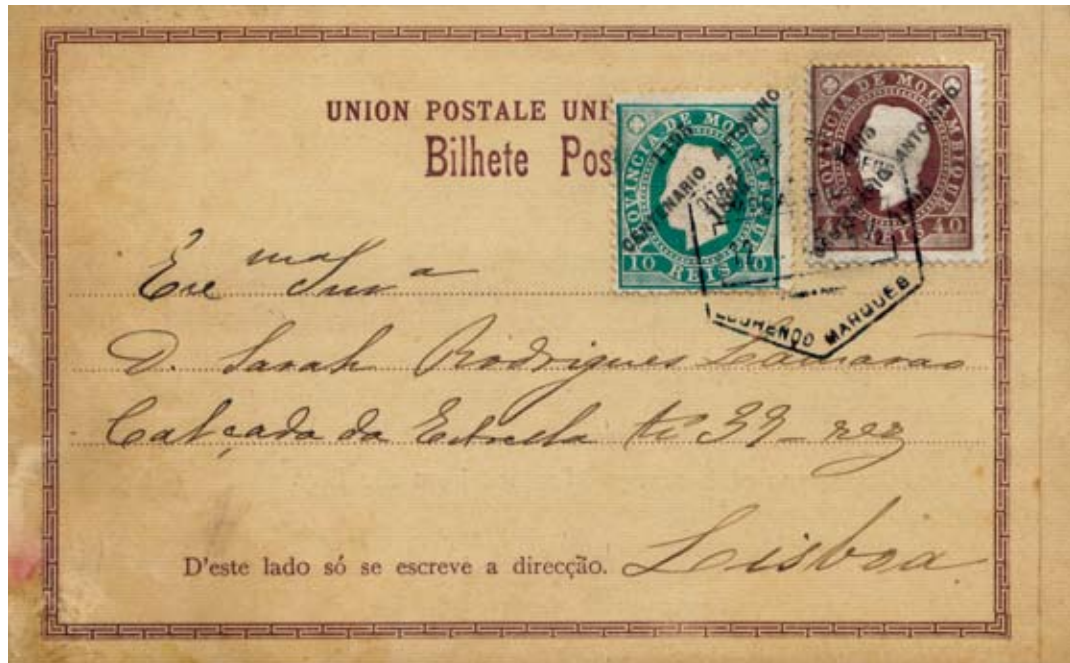 UNION POSTALE UNI
Bilhete Pos
PROVINCIA DE MOÇAMBIQUE
CENTENARIO
ANTONINO
10 REIS 10
PROVINCIA DE MOÇAMBIQUE
REIS 40
LOURENÇO MARQUES
Exc ma Snr a
D. Sarah Rodrigues
Calçada da Estrella 39 - rez
Lisboa
D'este lado só se escreve a direcção.